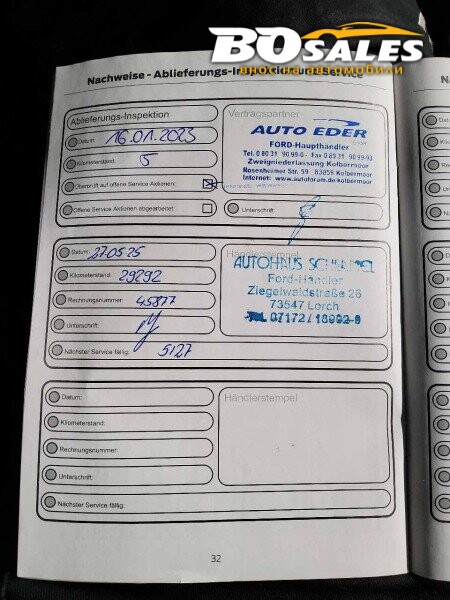 BO SALES
внос на автомобили
Nachweise - Ablieferungs-Inspektion und Service
Ablieferungs-Inspektion
Datum: 16.01.2023
Kilometerstand: 5
Überprüft auf offene Service Aktionen:
Offene Service Aktionen abgearbeitet:
Vertragspartner
AUTO EDER
FORD-Haupthändler
Tel. 0 80 31 90 99-0 · Fax 0 80 31 90 99-93
Zweigniederlassung Kolbermoor
Rosenheimer Str. 59 · 83059 Kolbermoor
Internet: www.autoforum.de/kolbermoor
Unterschrift:
Datum: 27.05.25
Kilometerstand: 29292
Rechnungsnummer: 45877
Unterschrift:
Nächster Service fällig: 5127
AUTOHAUS
Ford-Händler
Ziegelwaldstraße 26
73547 Lorch
Tel. 07172 / 18992-0
Datum:
Kilometerstand:
Rechnungsnummer:
Unterschrift:
Nächster Service fällig:
Händlerstempel
32